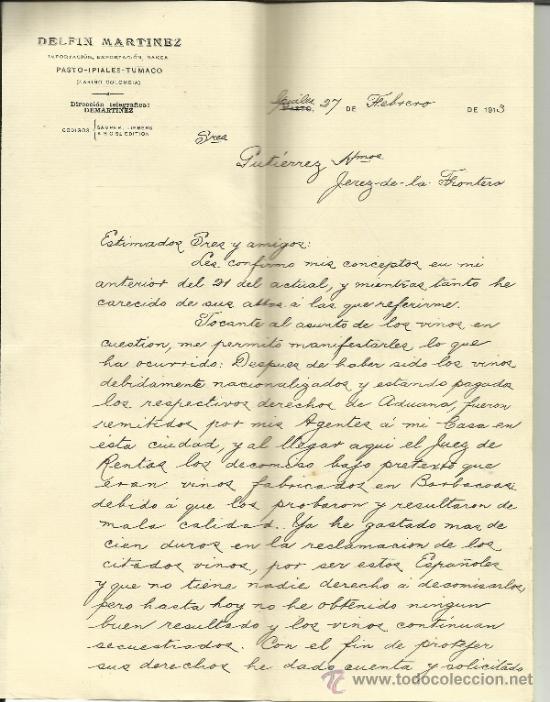 DELFIN MARTINEZ
IMPORTACIÓN, EXPORTACIÓN, BANCA
PASTO-IPIALES-TUMACO
(NARIÑO COLOMBIA)
Dirección telegrafica:
DEMARTINEZ
CODIGOS
A B C 5th EDITION
Ipiales, 27 DE Febrero DE 1913
PASTO,
Sres
Gutiérrez Hmos
Jerez-de-la-Frontera
Estimados Sres y amigos:
Les confirmo mis conceptos en mi
anterior del 21 del actual, y mientras tanto he
carecido de sus attas á las que referirme.
Tocante al asunto de los vinos en
cuestion, me permito manifestarles lo que
ha ocurrido: Despues de haber sido los vinos
debidamente nacionalizados y estando pagados
los respectivos derechos de Aduana, fueron
remitidos por mis Agentes á mi Casa en
esta ciudad, y al llegar aqui el Juez de
Rentas los decomiso bajo pretexto que
eran vinos fabricados en Barbacoas
debido á que los probaron y resultaron de
mala calidad. Ya he gastado mas de
cien duros en la reclamacion de los
citados vinos, por ser estos Españoles
y que no tiene nadie derecho á decomisarlos,
pero hasta hoy no he obtenido ningun
buen resultado y los vinos continuan
secuestrados. Con el fin de protejer
sus derechos he dado cuenta y solicitado
todocoleccion
www.todocoleccion.net